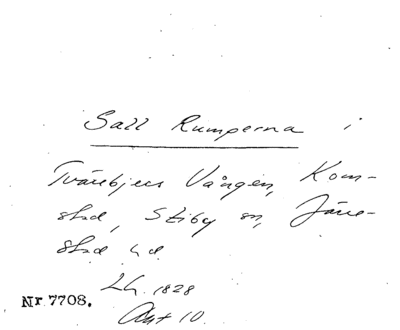 Sall Rumperna i
Tvärebjers Vången, Kom-
stad, Stiby sn, Järre-
stad hd.
Lh. 1828
Nr 7708.
Akt 10